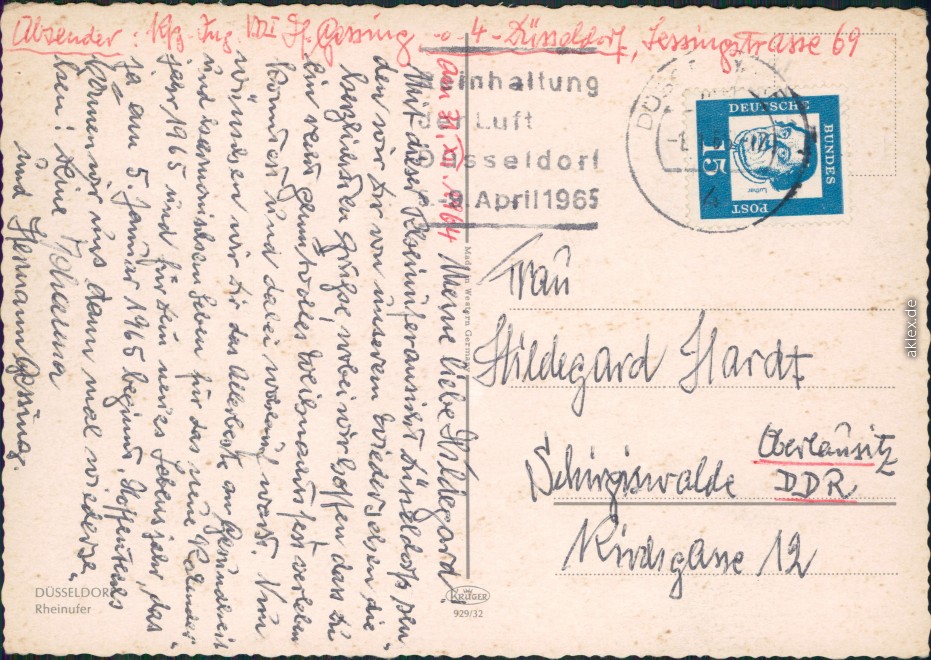 Absender: Kfz. Ing. VDI H. Gessing -o- 4 - Düsseldorf, Lessingstrasse 69
am 31. XII. 1964 Meine liebe Hildegard!
Mit dieser Rheinuferansicht Düsseldorfs sen-
den wir Dir von unserem Wiedersehen die
herzlichsten Grüße, wobei wir hoffen das Du
ein recht stimmvolles Weihnachtsfest verleben
konntest und dabei warst. Nun
wünschen wir Dir das Allerbeste an Gesundheit
und harmonischem Leben für das neue Kalender
jahr 1965 und für Dein neues Lebensjahr, das
ja am 5. Januar 1965 beginnt. Hoffentlich
können wir uns dann mal wieder-
sehen! Deine Johanna
und Hermann Gessing.
einhaltung
der Luft
Düsseldorf
-9. April 1965
DEUTSCHE
BUNDES
POST
15
Luther
Frau
Hildegard Hardt
Schirgiswalde
Oberlausitz
DDR
Kirchgasse 12
Made in Western Germany
KRÜGER
929/32
DÜSSELDORF
Rheinufer
aklex.de